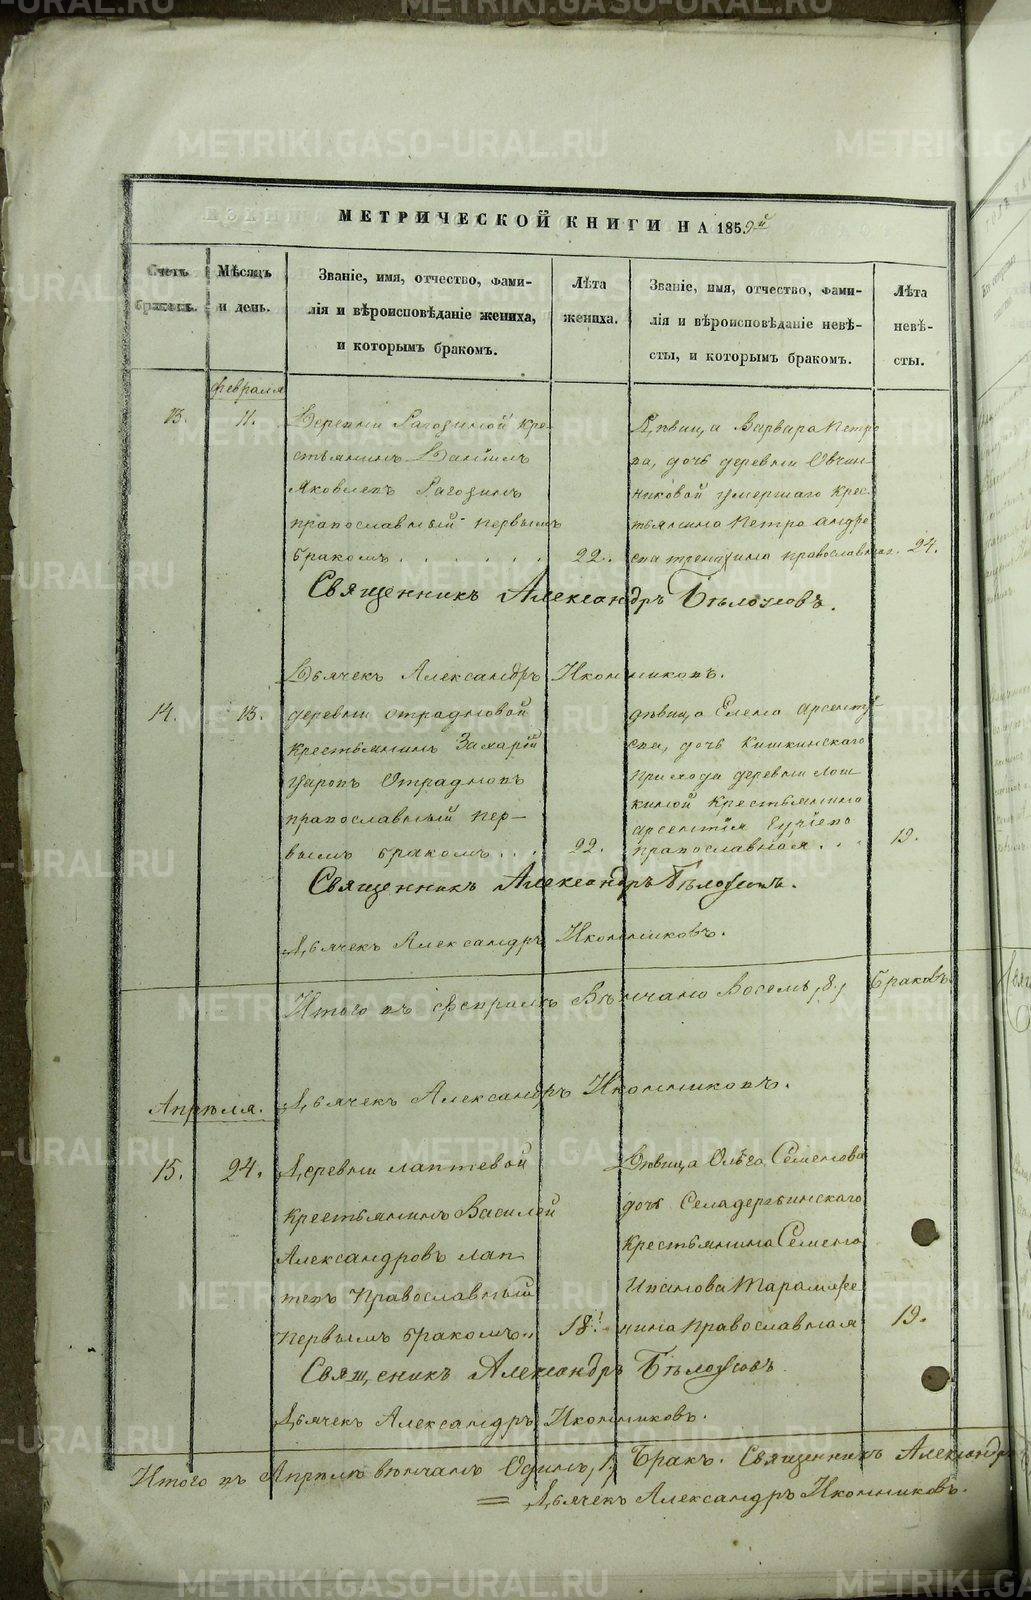 METRIKI.GASO-URAL.RU
МЕТРИЧЕСКОЙ КНИГИ НА 1859й
Счетъ браковъ.
Мѣсяцъ и день.
Званіе, имя, отчество, фами-
лія и вѣроисповѣданіе жениха,
и которымъ бракомъ.
Лѣта
жениха.
Званіе, имя, отчество, фами-
лія и вѣроисповѣданіе невѣ-
сты, и которымъ бракомъ.
Лѣта
невѣ-
сты.
февраля
13. 11.
Деревни Рагозиной кре
стьянинъ Даніилъ
Яковлевъ Рагозинъ
православный первымъ
бракомъ . . . . . . . 22.
Дѣвица Варвара Петро
ва, дочь деревни Овчин
никовой умершаго Крес
тьянина Петра Андре
ева православная. 24.
Священникъ Александръ Бѣлоусовъ.
Дьячекъ Александръ Иконниковъ.
14. 13.
деревни отрадновой
крестьянинъ Захарій
Отрадновъ
православный пер-
вымъ бракомъ . . . 22.
дѣвица Елена арсентіе
ва, дочь Кишкинскаго
прихода деревни Лош
киной Крестьянина
арсентія
православная . . . 19.
Священникъ Александръ Бѣлоусовъ.
Дьячекъ Александръ Иконниковъ.
Итого въ февралѣ Вѣнчано Восемь, 8, Браковъ
Дьячекъ Александръ Иконниковъ.
Апрѣля.
15. 24.
Деревни лаптевой
крестьянинъ Василій
Александровъ лап
тевъ Православный
первымъ бракомъ.. 18.
Дѣвица Ольга Семенова
дочь
крестьянина Семена
Иванова
нина Православная 19.
Священникъ Александръ Бѣлоусовъ
Дьячекъ Александръ Иконниковъ.
Итого въ Апрѣлѣ вѣнчанъ Одинъ, 1, Бракъ. Священникъ Александръ
= Дьячекъ Александръ Иконниковъ.